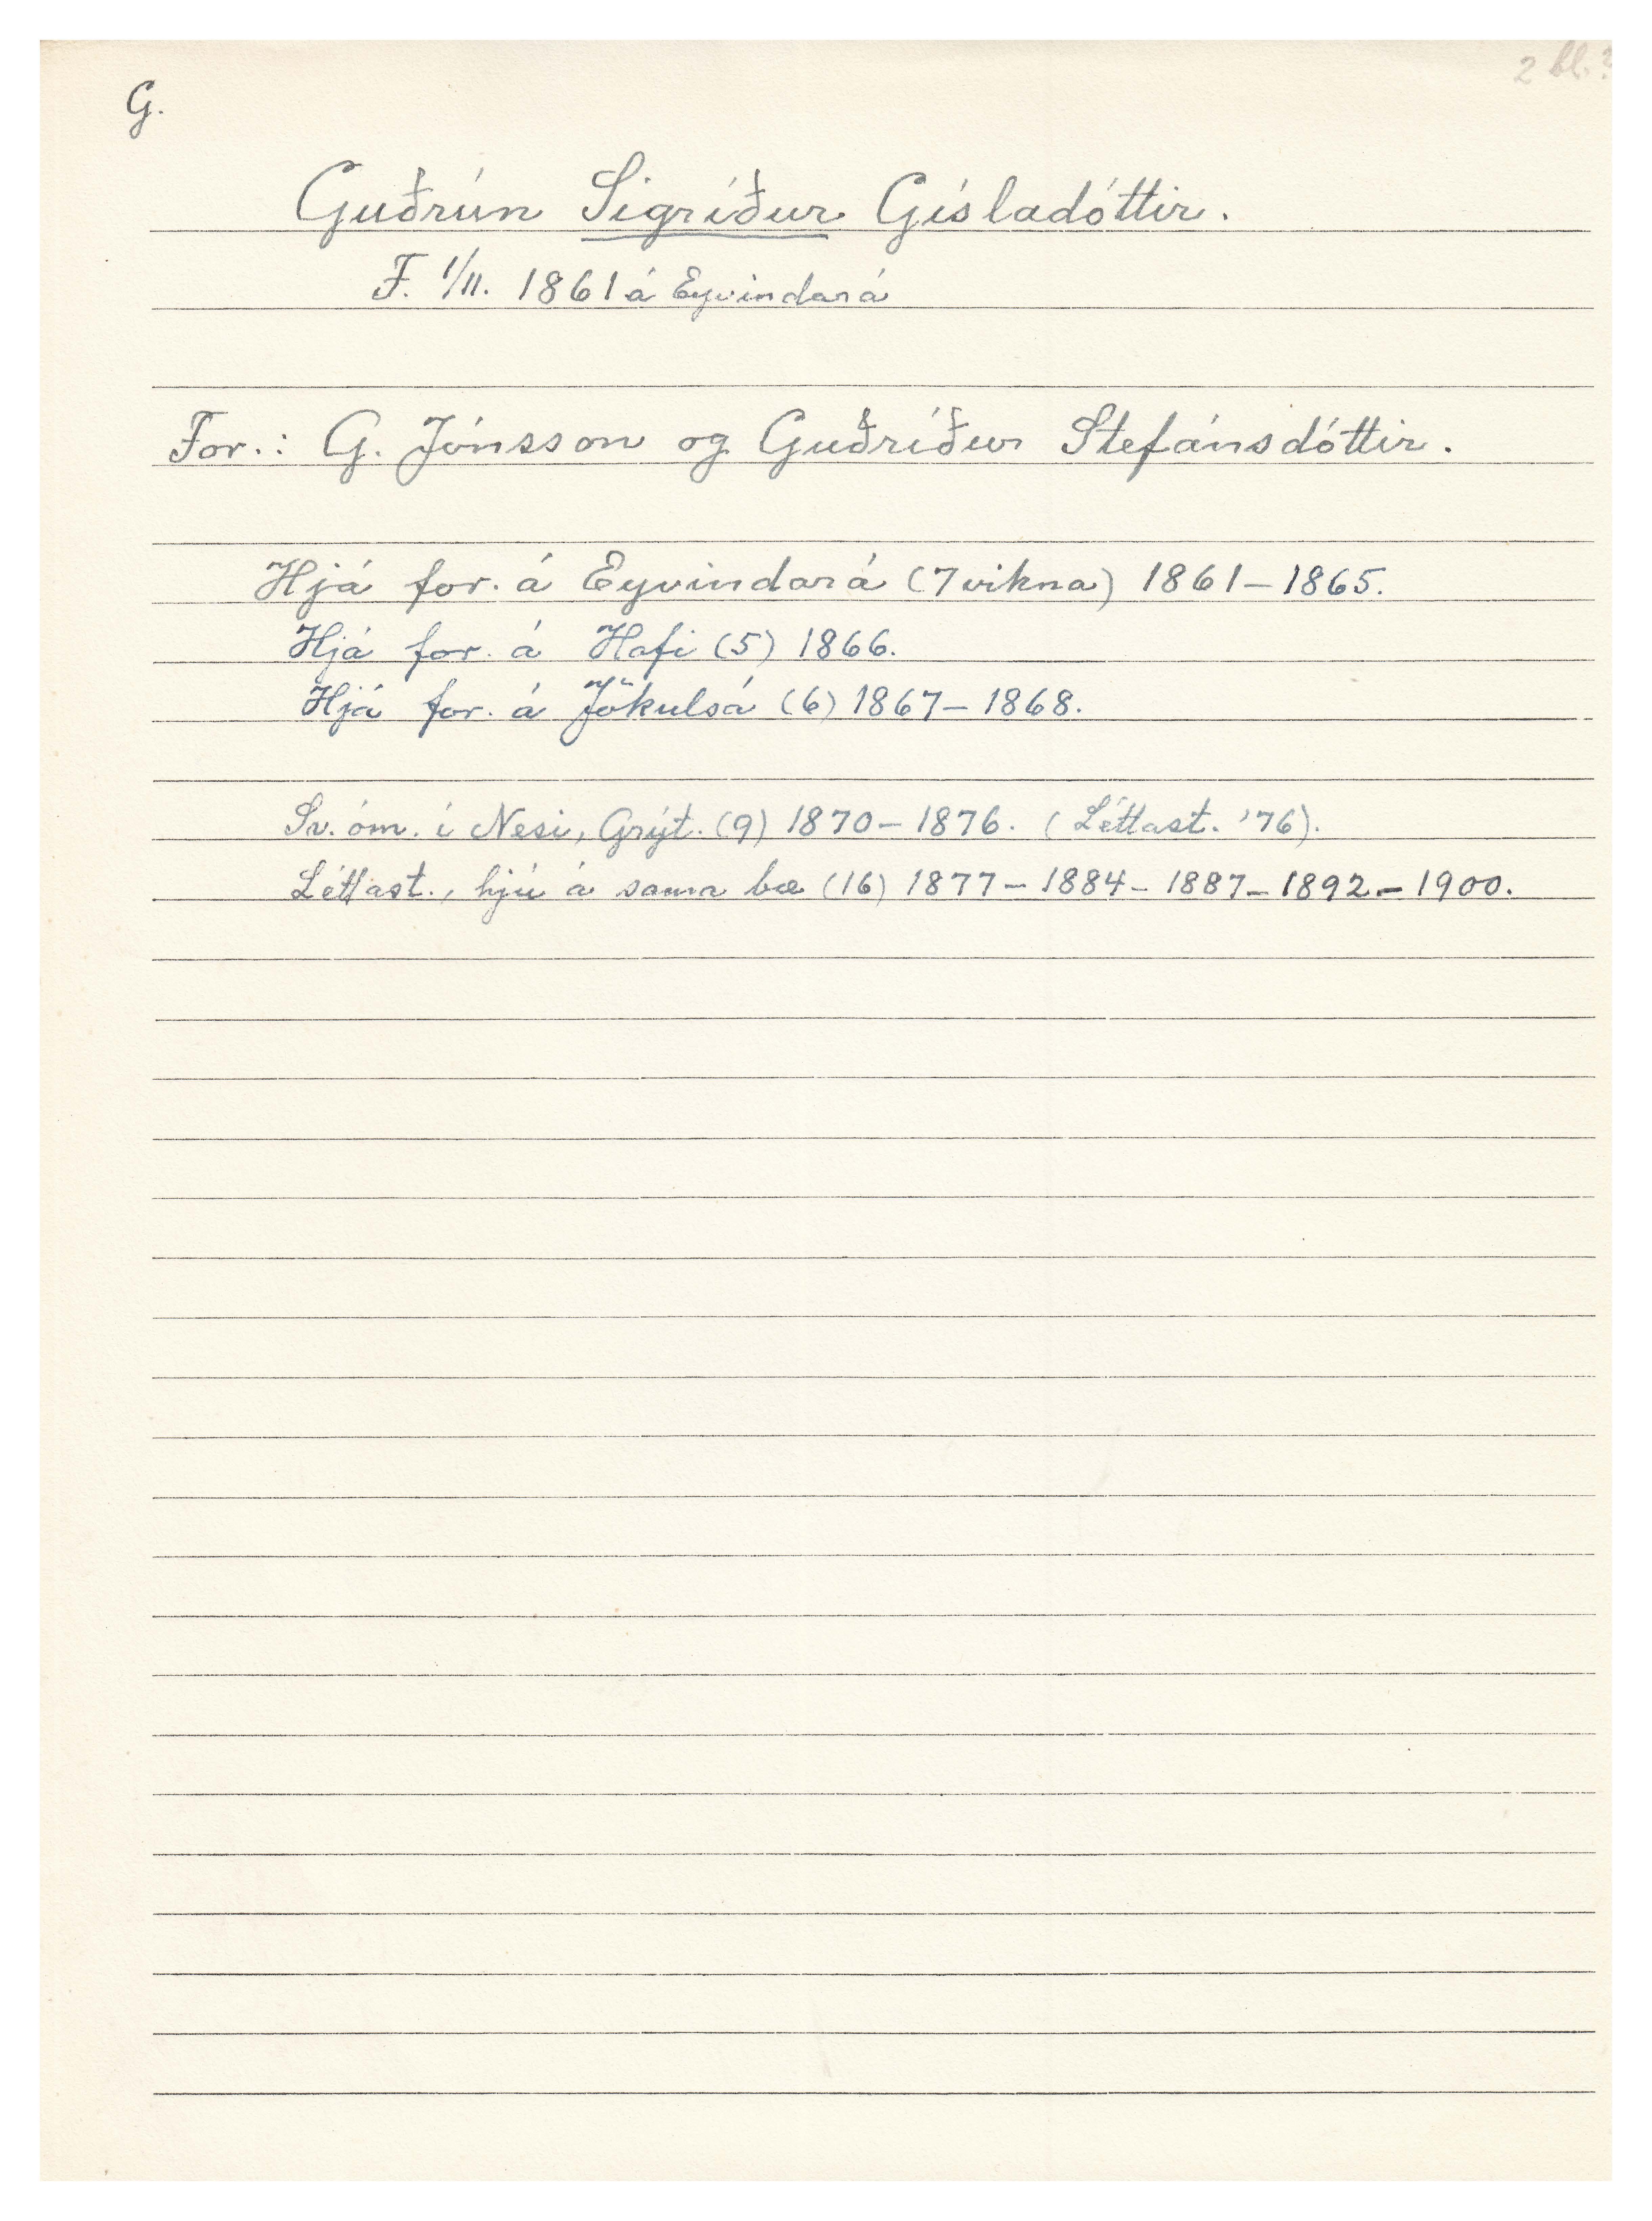 2 bl.?
G.
Guðrún Sigríður Gísladóttir.
F. 1/11. 1861 á Eyvindará
For.: G. Jónsson og Guðríður Stefánsdóttir.
Hjá for. á Eyvindará (7 vikna) 1861-1865.
Hjá for. á Hofi (5) 1866.
Hjá for. á Jökulsá (6) 1867-1868.
Sv. óm. í Nesi, Grýt. (9) 1870-1876. (Léttast. '76).
Léttast., hjú á sama bæ (16) 1877-1884-1887-1892-1900.